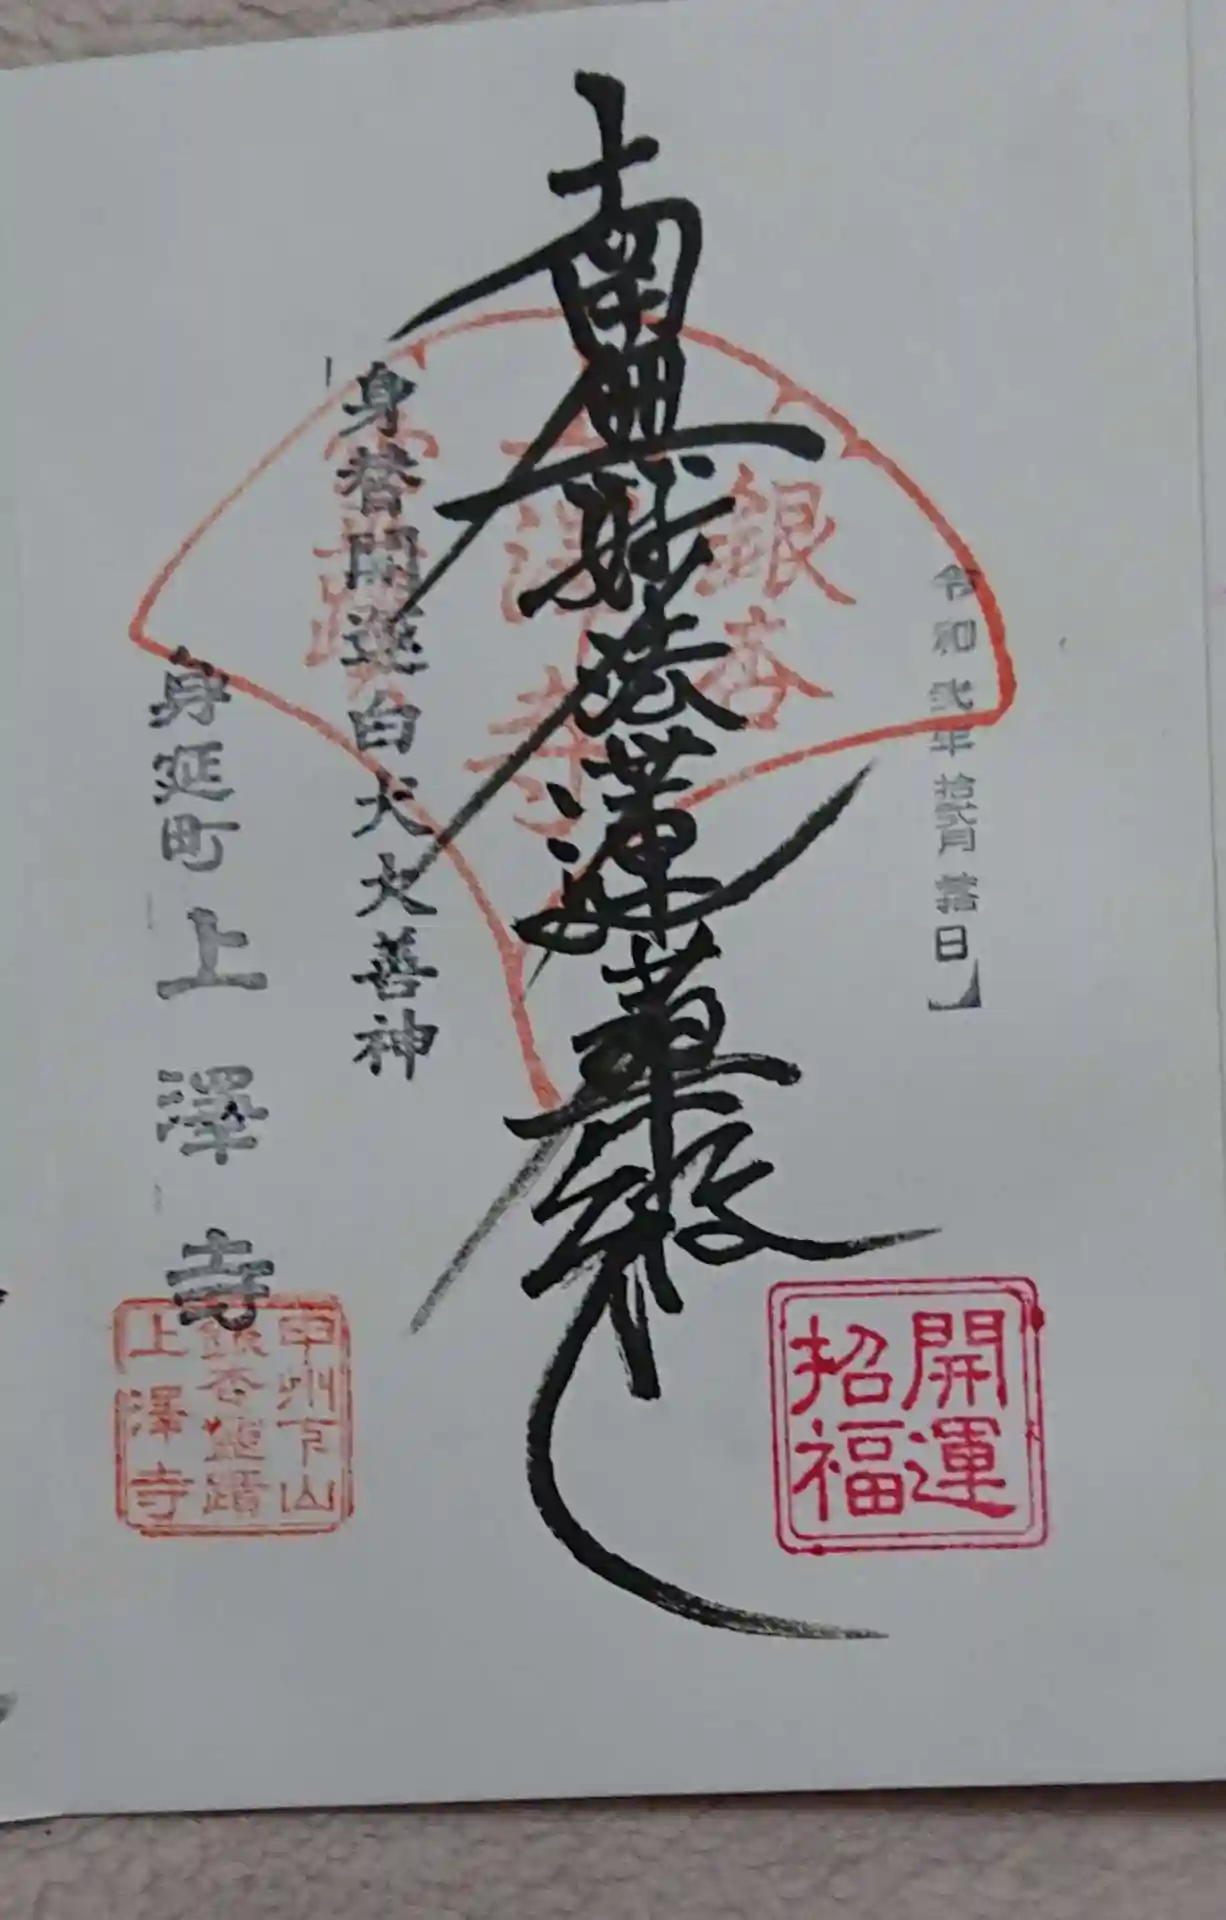 令和弐年拾弐月拾日
南無妙法蓮華経
銀杏
上澤寺
霊蹟
身替開運白犬大善神
身延町 上澤寺
開運
招福
甲州下山
銀杏霊蹟
上澤寺